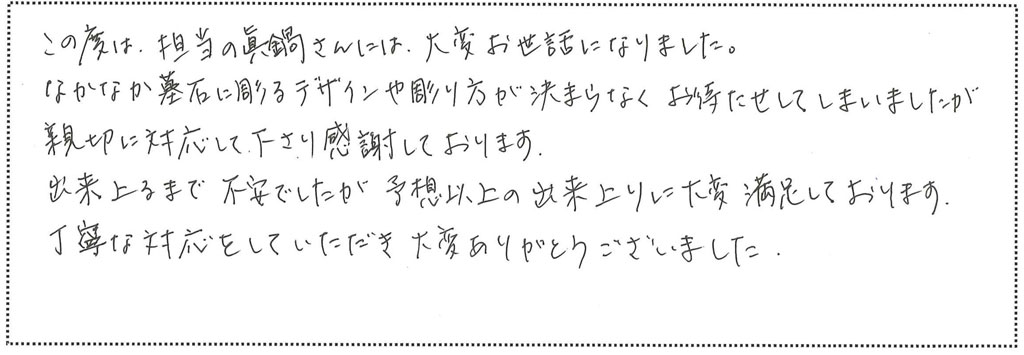 この度は、担当の眞鍋さんには、大変お世話になりました。
なかなか墓石に彫るデザインや彫り方が決まらなくお待たせしてしまいましたが
親切に対応して下さり感謝しております。
出来上るまで不安でしたが予想以上の出来上りに大変満足しております。
丁寧な対応をしていただき大変ありがとうございました。